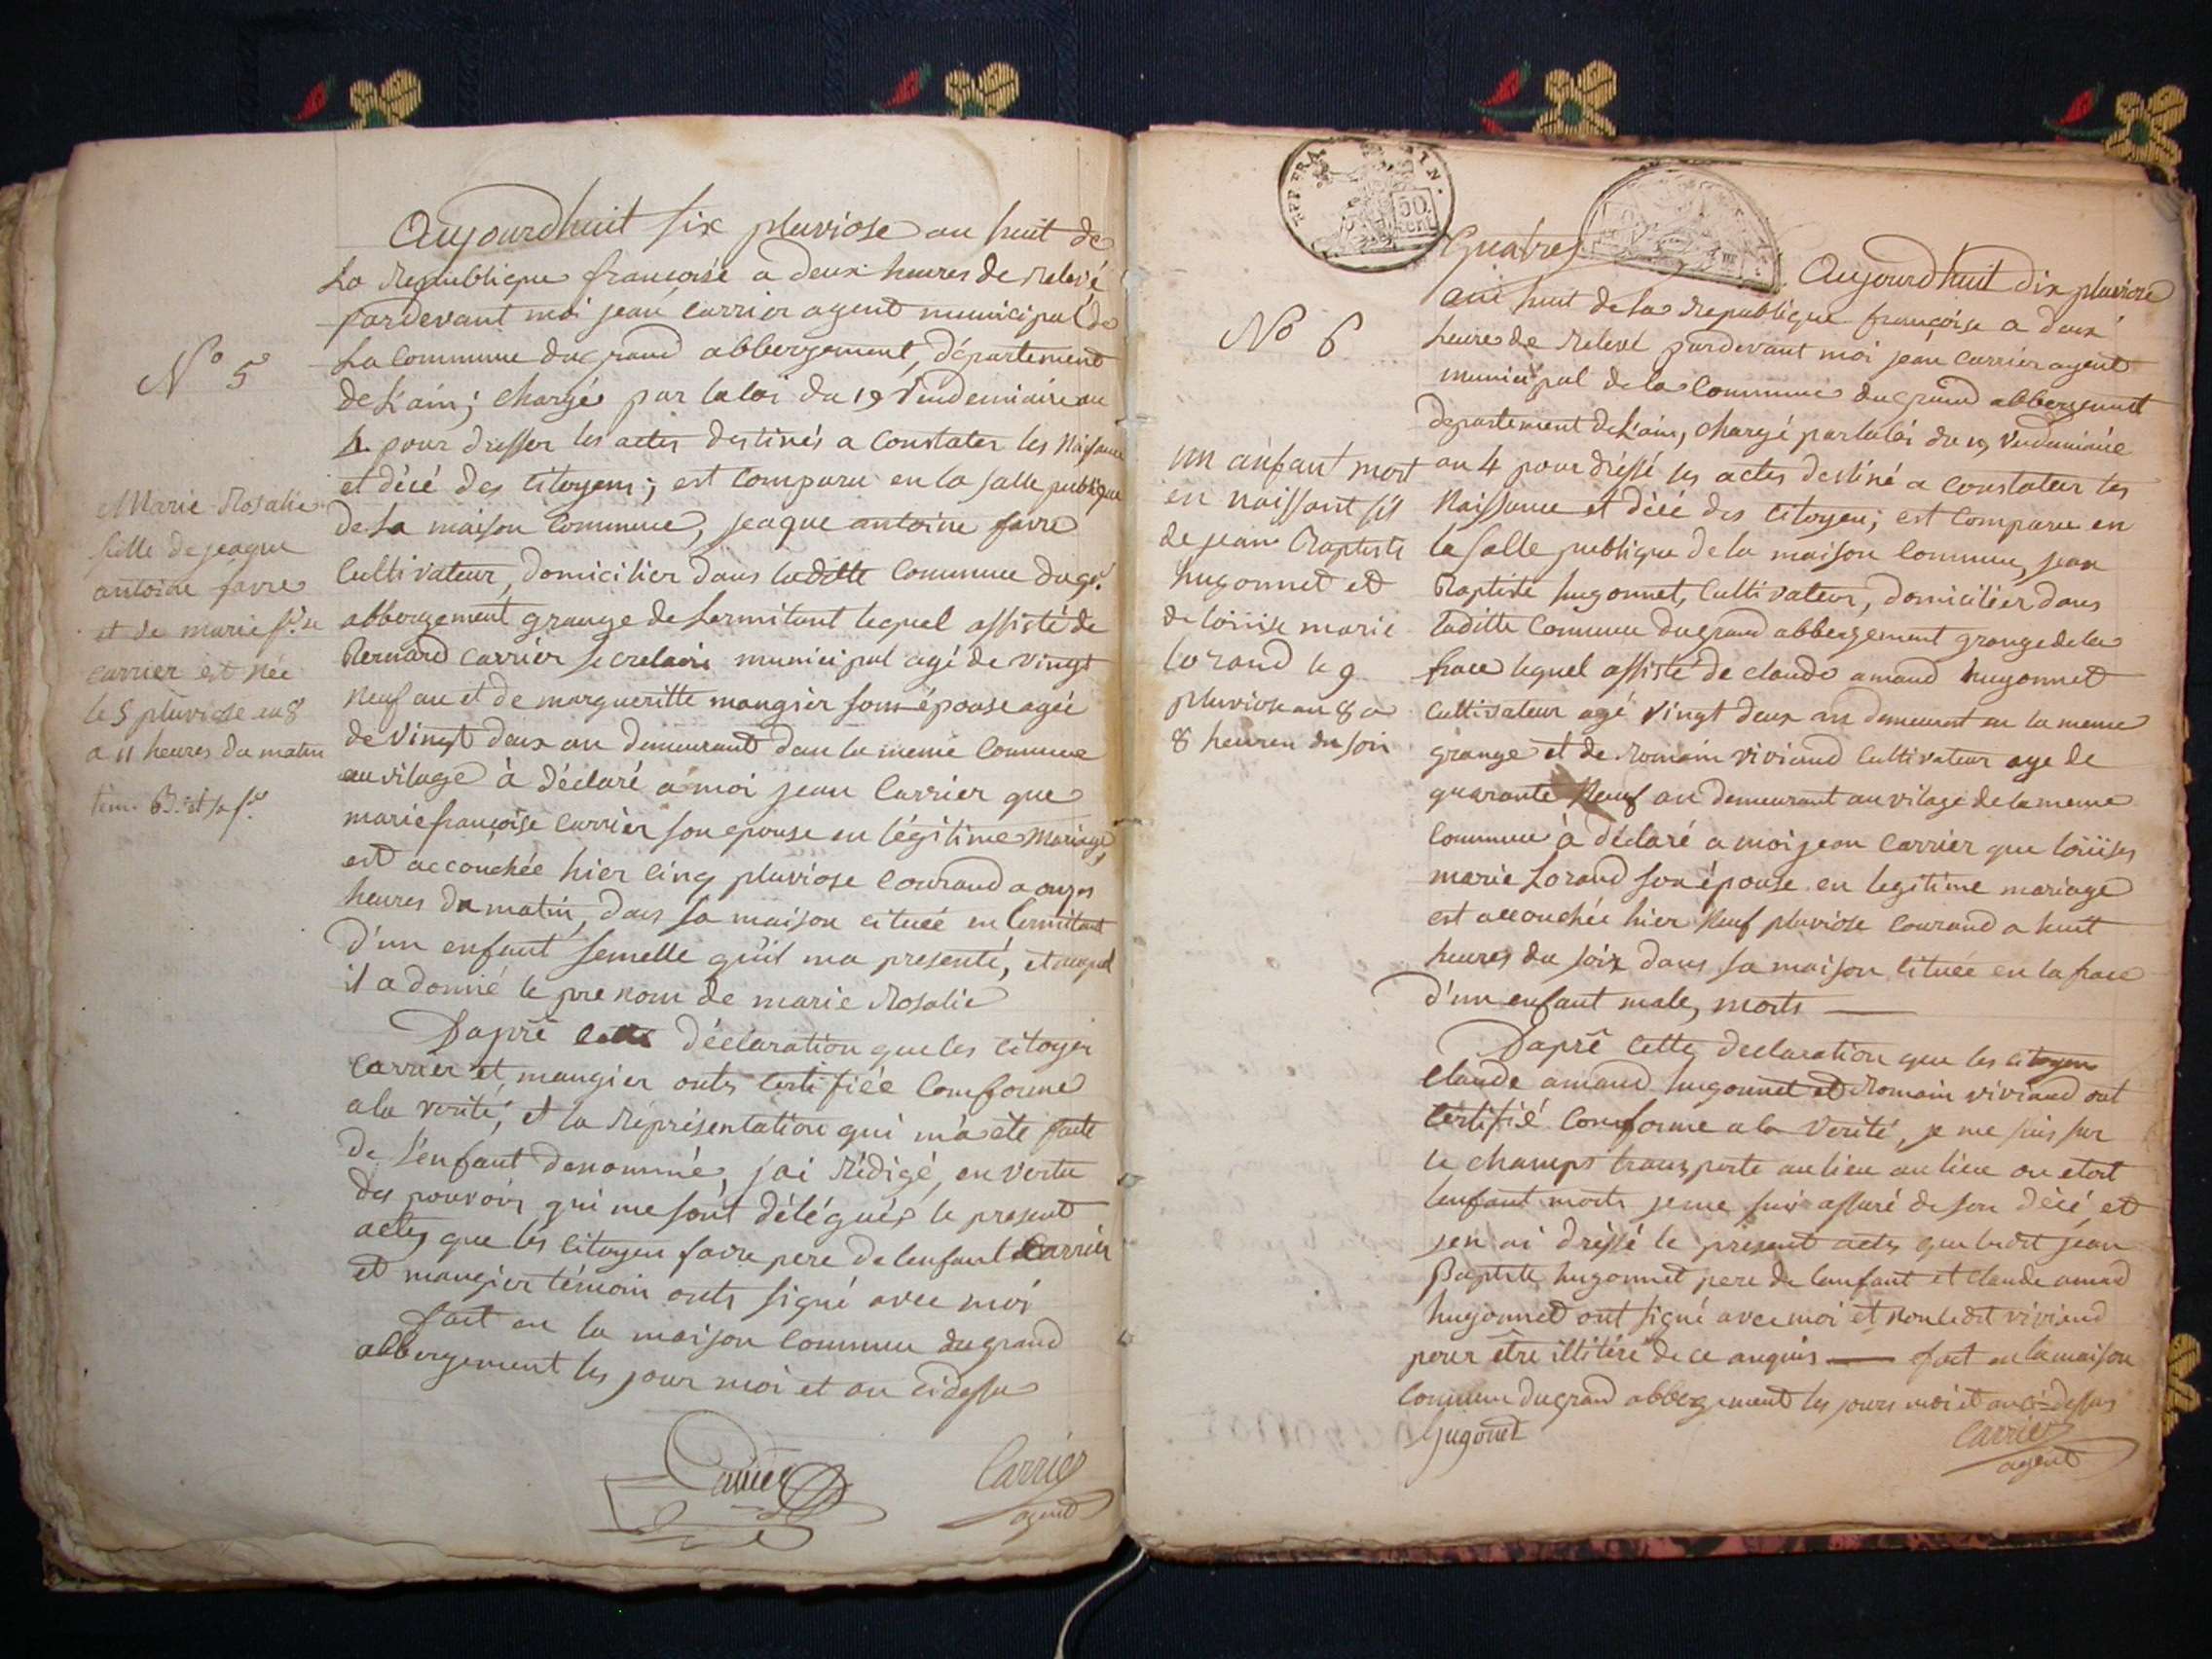 Aujourdhuit six pluviose an huit de
La Republique françoise a deux heures de relevé
pardevant moi jean carrier agent municipal de
La Commune du grand abbergement, département
de L'ain; chargé par la loi du 19 Vendemiaire an
4. pour dresser les actes destinés a Constater les Naissance
et décé des Citoyens; est Comparu en la salle publique
de La maison Commune, jeaque antoine favre
Cultivateur, domicilier dans laditte Commune du gd.
abbergement grange de Lermitant lequel assisté de
Bernard carrier secretaire municipal agé de vingt
neuf an et de margueritte mangier son épouse agée
de Vingt deux an demeurant dan la meme Commune
au vilage à déclaré a moi jean Carrier que
marie françoise carrier son epouse en légitime Mariage,
est accouchée hier cinq pluviose Courand a onzes
heures du matin, dans sa maison cituée en Lermitant
d'un enfant femelle qu'il ma presenté, et auquel
il a donné le prenom de marie Rosalie
Dapré cette déclaration que les Citoyen
Carrier et mangier onts Certifiée Comforme
a la verité, et la Réprésentation qui m'a été faite
de l'enfant denommé, j'ai rédigé, en vertu
des pouvoirs qui me sont délégués le present
actes que les Citoyen favre pere de lenfant Carrier
et mangier témoin onts signé avec moi
fait en la maison Commune du grand
abbergement les jour moi et an cidessu
Carrier
Carrier
agent
N° 5
Marie Rosalie
fille de jeaque
antoine favre
et de marie fse
carrier est née
le 5 pluviose an 8
a 11 heures du matin
REP. FRA.
50
cent
Quatre
Aujourdhuit dix pluviose
an huit de la Republique françoise a deux
heures de Relevé pardevant moi jean carrier agent
municipal de la Commune du grand abbergement
departement de L'ain, chargé par la loi du 19 Vendemiaire
an 4 pour dréssé les actes destiné a constater les
Naissance et décé des Citoyen; est Comparu en
la Salle publique de la maison Commune, jean
Baptiste hugonnet, Cultivateur, domicilier dans
laditte Commune du grand abbergement grange de la
frace lequel assisté de claude amand hugonnet
Cultivateur agé vingt deux an demeurant en la meme
grange et de Romain viviand Cultivateur age de
quarante Neuf an demeurant au vilage de la meme
Commune à déclaré a moi jean Carrier que loüises
marie Lorand son épouse en legitime mariage
est accouchée hier Neuf pluviose Courand a huit
heures du soir dans sa maison cituée en la frace
d'un enfant male, morts
Dapré Cette declaration que les citoyen
Claude amand hugonnet et Romain viviand ont
Certifié Comforme a la verité, je me suis sur
le champs transporté au lieu au lieu ou etoit
lenfant morts je me suis assuré de son décé et
jen ai dréssé le present actes que ledit jean
Baptiste hugonnet pere de lenfant et Claude amand
hugonnet ont signé avec moi et non ledit viviand
pour être illitéré de ce anquis fait en la maison
Commune du grand abbergement les jours moi et an ci-dessus
hugonet
Carrier
agent
N° 6
un anfant mort
en naissant fils
de jean Baptiste
hugonnet et
de loüise marie
lorand le 9
pluviose an 8 a
8 heures du soir